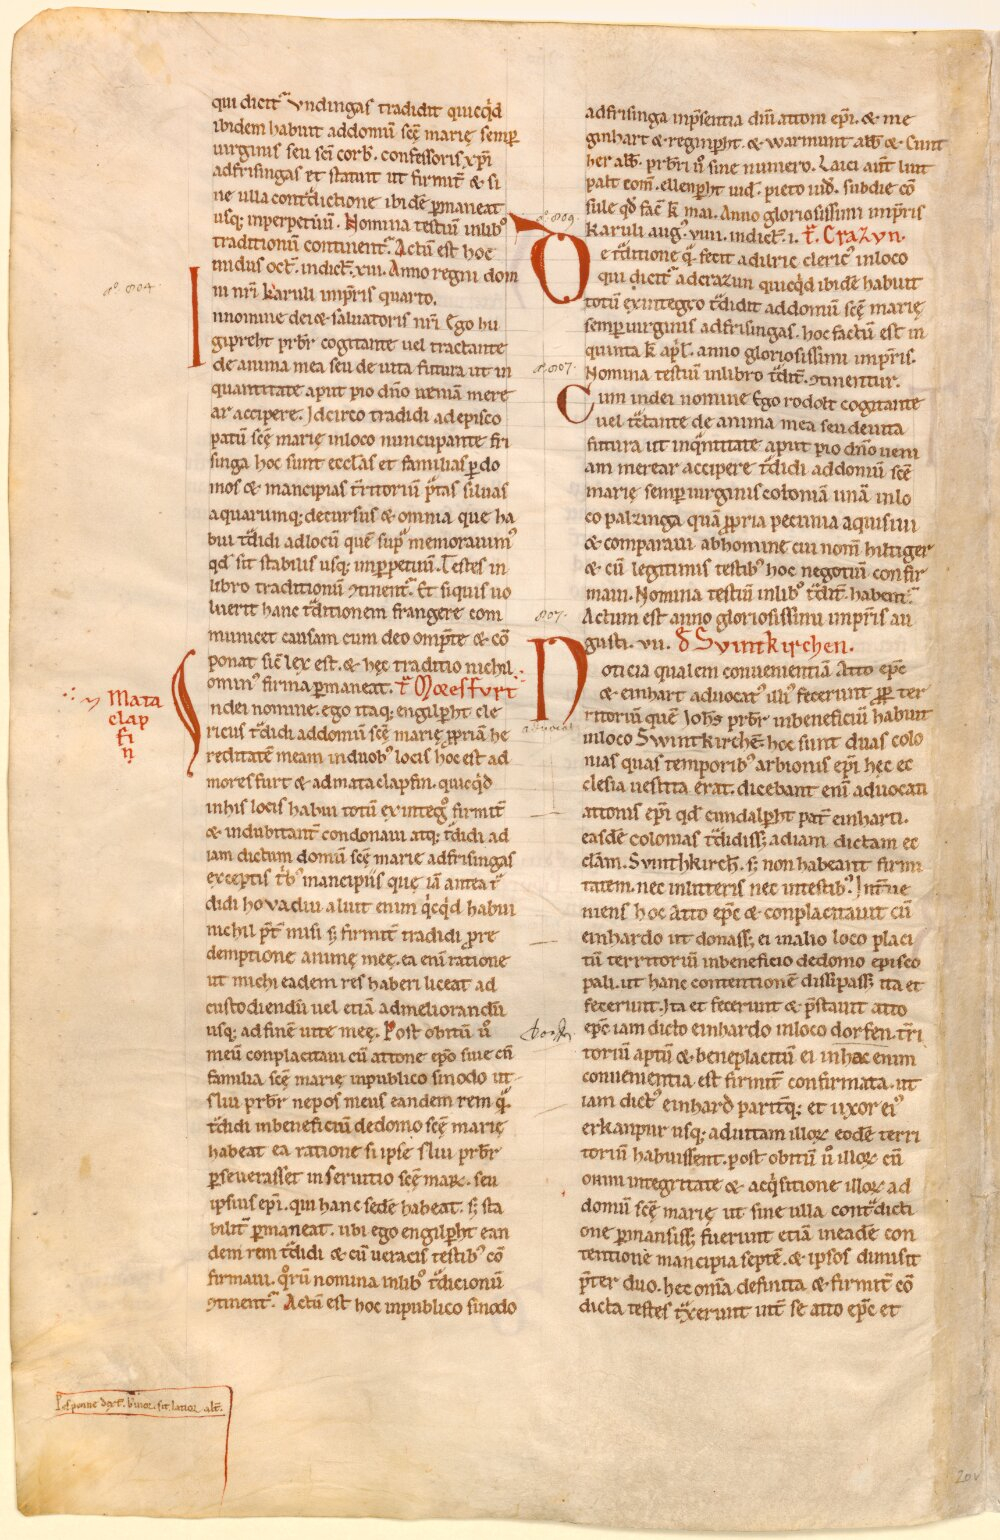 qui dicit᷑ Vndingas tradidit quicqd̓
ibidem habuit addomū sc̄ę marię semꝑ
uirginis seu sc̄i corb̄. confessoris xp̄i
adfrisingas et statuit ut firmit᷑ & si
ne ulla contͣdictione ibidē ꝑmaneat
usq; inperpetuū. Nomina testiū inlibͦ
traditionū continent᷑. Actū est hoc
inidus oct̄. indict̄. xiii. Anno regni dom
ini nr̄i karuli impr̄is quarto.
aͦ. 804.
Innomine dei & saluatoris nr̄i Ego hu
gipreht prb̄r cogitante uel tractante
de anima mea seu de uita futura ut in
quantitate aput pio dn̄o ueniā mere
ar accipere. Idcirco tradidi ad episco
patū sc̄ę marię inloco nuncupante fri
singa hoc sunt eccl̄as et familias ꝑdo
mos & mancipias t̄ritoriū p̄tas siluas
aquarumq; decursus & omnia que ha
bui tͣdidi adlocū quē supͣ memorauimꝰ
qd̄ sit stabilis usq; inꝑpetuū. Testes in
libro traditionū ꝯtinent᷑. Et siquis uo
luerit hanc tͣditionem frangere com
municet causam cum deo omp̄te & cō
ponat sic̄ lex est. & hec traditio nichil
ominꝰ firma ꝑmaneat. t᷑ Moesfurt
7 Mata
clap
fi
n̄
Indei nomine. ego itaq; engilꝑht cle
ricus tͣdidi addomū sc̄ę marię ꝓpriā he
reditatē meam induobꝰ locis hoc est ad
moresfurt & admataclapfin. quicqd̓
inhis locis habui totū exintegͦ firmit᷑
& indubitant᷑ condonaui atq; tͣdidi ad
iam dictum domū sc̄ę marię adfrisingas
exceptis tͥbꝰ mancipiis que iā antea tͣ
didi houuadiu aluit enim qͥcqd̓ habui
nichil p̄t᷑ misi s; firmit᷑ tradidi ꝓre
demptione animę meę. ea enī ratione
ut michi eadem res haberi liceat ad
custodiendū uel etiā admeliorandū
usq; adfinē uite meę. Post obitū ů
meū conplacitam cū attone ep̄o siue cū
familia sc̄ę marię inpublico sinodo ut
sliu prb̄r nepos meus eandem rem qͣ
tͣdidi inbeneficiū dedomo sc̄ę marię
habeat ea ratione si ipse sliu prb̄r
ꝑseuerasset inseruitio sc̄ę marię. seu
ipsius ep̄i. qui hanc sedē habeat. s; sta
bilit᷑ ꝑmaneat. ubi ego engilꝑht ean
dem rem tͣdidi & cū ueracis testibꝰ cō
firmaui. qͦrū nomina inlibͦ tͣdicionū
ꝯtinent᷑. Actū est hoc inpublico sinodo
adfrisinga inp̄sentia dn̄i attoni ep̄i. & me
ginhart & reginꝑht. & warmunt abb̄ & Cunt
her abb̄. prb̄ri ů sine numero. Laici aut̄ liut
palt com̄. ellenꝑht uid̄. pieto uid̄. subdie cō
sule qd̄ fac̄ k̄ mai. Anno gloriosissimi impr̄is
karuli aug̓. viiii. indict̄. i. t᷑. Crazun.
aͦ. 809.
De tͣditione qͣ fecit adilric clericꝰ inloco
qui dicit᷑ adcrazun quicqd̓ ibidē habuit
totū exintegro tͣdidit addomū sc̄ę marię
semꝑ uirginis adfrisingas. hoc factū est in
quinta k̄ apl̄. anno gloriosissimi impr̄is.
Nomina testiū inlibro tͣdit̄. ꝯtinentur.
aͦ. 807.
Cum indei nomine Ego rodolt cogitante
uel tͣctante de anima mea seu deuita
futura ut inqͣntitate aput pio dn̄o ueni
am merear accipere tͣdidi addomū sc̄ę
marię semꝑ uirginis coloniā unā inlo
co palzinga quā ꝓpria pecunia aquisiui
& comparaui abhomine cui nom̄ hiltiger
& cū legitimis testibꝰ hoc negotiū confir
maui. Nomina testiū inlibͦ tͣdit̄. habent᷑
Actum est anno gloriosissimi impr̄is au
gusti. vii. đ Suintkirchen.
807.
Noticia qualem conuenientiā Atto ep̄c
& einhart aduocatꝰ illiꝰ fecerunt ꝓpt᷑ ter
ritoriū quē Joh̄s prb̄r inbeneficiū habuit
aduocat
inloco Swintkirchē. hoc sunt duas colo
nias quas temporibꝰ arbionis ep̄i hec ec
clesia uestita erat. dicebant enī aduocati
attonis ep̄i qd̄ cundalꝑht pat᷑ einharti.
easdē colonias tͣdidiss; adiam dictam ec
clām. Suinthkirch̄. s; non habeant firmi
tatem. nec inlitteris nec intestibꝰ. Int᷑ue
niens hoc Atto ep̄c & conplacitauit cū
einhardo ut donass; ei inalio loco placi
tū territoriū inbeneficio dedomo episco
pali. ut hanc contentionē dissipass; ita et
fecerunt. Ita et fecerunt & p̄stauit atto
ep̄c iam dicto einhardo inloco dorfen. t᷑ri
toriū aptū & beneplacitū ei inhac enim
dorffen
conuenientia est firmit᷑ confirmata. ut
iam dictꝰ einhard parit᷑q; et uxor eiꝰ
erkanpur usq; aduitam illoꝝ eodē terri
toriū habuissent. post obitū ů illoꝝ cū
omni integritate & acqͥsitione illoꝝ ad
domū sc̄ę marię ut sine ulla contͣdicti
one ꝑmansiss; fuerunt etiā ineadē con
tentione mancipia septē. & ipsos dimisit
p̄ter duo. hec om̄ia definita & firmit᷑ cō
dicta testes tͣxerunt int᷑ se atto ep̄c et
20v